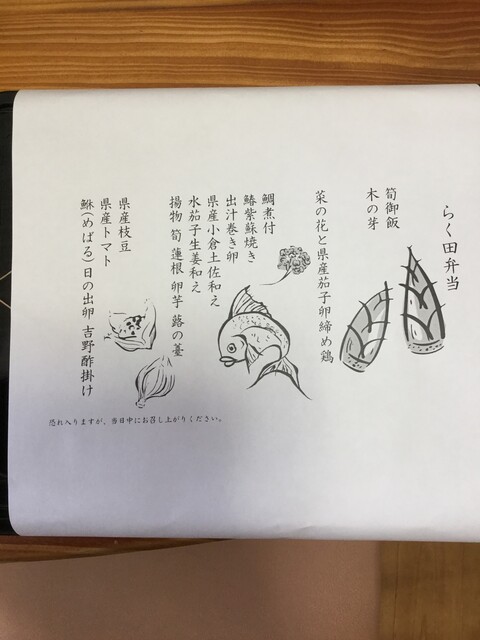 らく田弁当
筍御飯
木の芽
菜の花と県産茄子卵締め鶏
鯛煮付
鰆紫蘇焼き
出汁巻き卵
県産小倉土佐和え
水茄子生姜和え
揚物 筍 蓮根 卵芋 蕗の薹
県産枝豆
県産トマト
鮴(めばる)日の出卵 吉野酢掛け
恐れ入りますが、当日中にお召し上がりください。